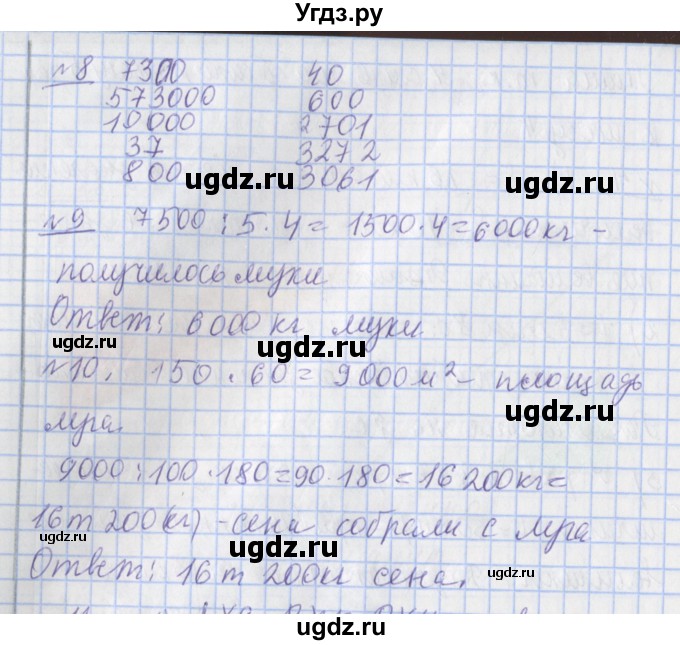 Угдз.ру
№8 7300 40
573000 600
10000 2701
37 3272
800 3061
ugdz.ru ugdz.ru
№9 7500 : 5 · 4 = 1500 · 4 = 6000 кг –
получилось муки
Ответ: 6000 кг муки.
ugdz.ru ugdz.ru
№10. 150 · 60 = 9000 м² – площадь
луга.
9000 : 100 · 180 = 90 · 180 = 16 200 кг =
16 т 200 (кг) – сена собрали с луга
ugdz.ru ugdz.ru
Ответ: 16 т 200 кг сена.
ugdz.ru
ugdz.ru